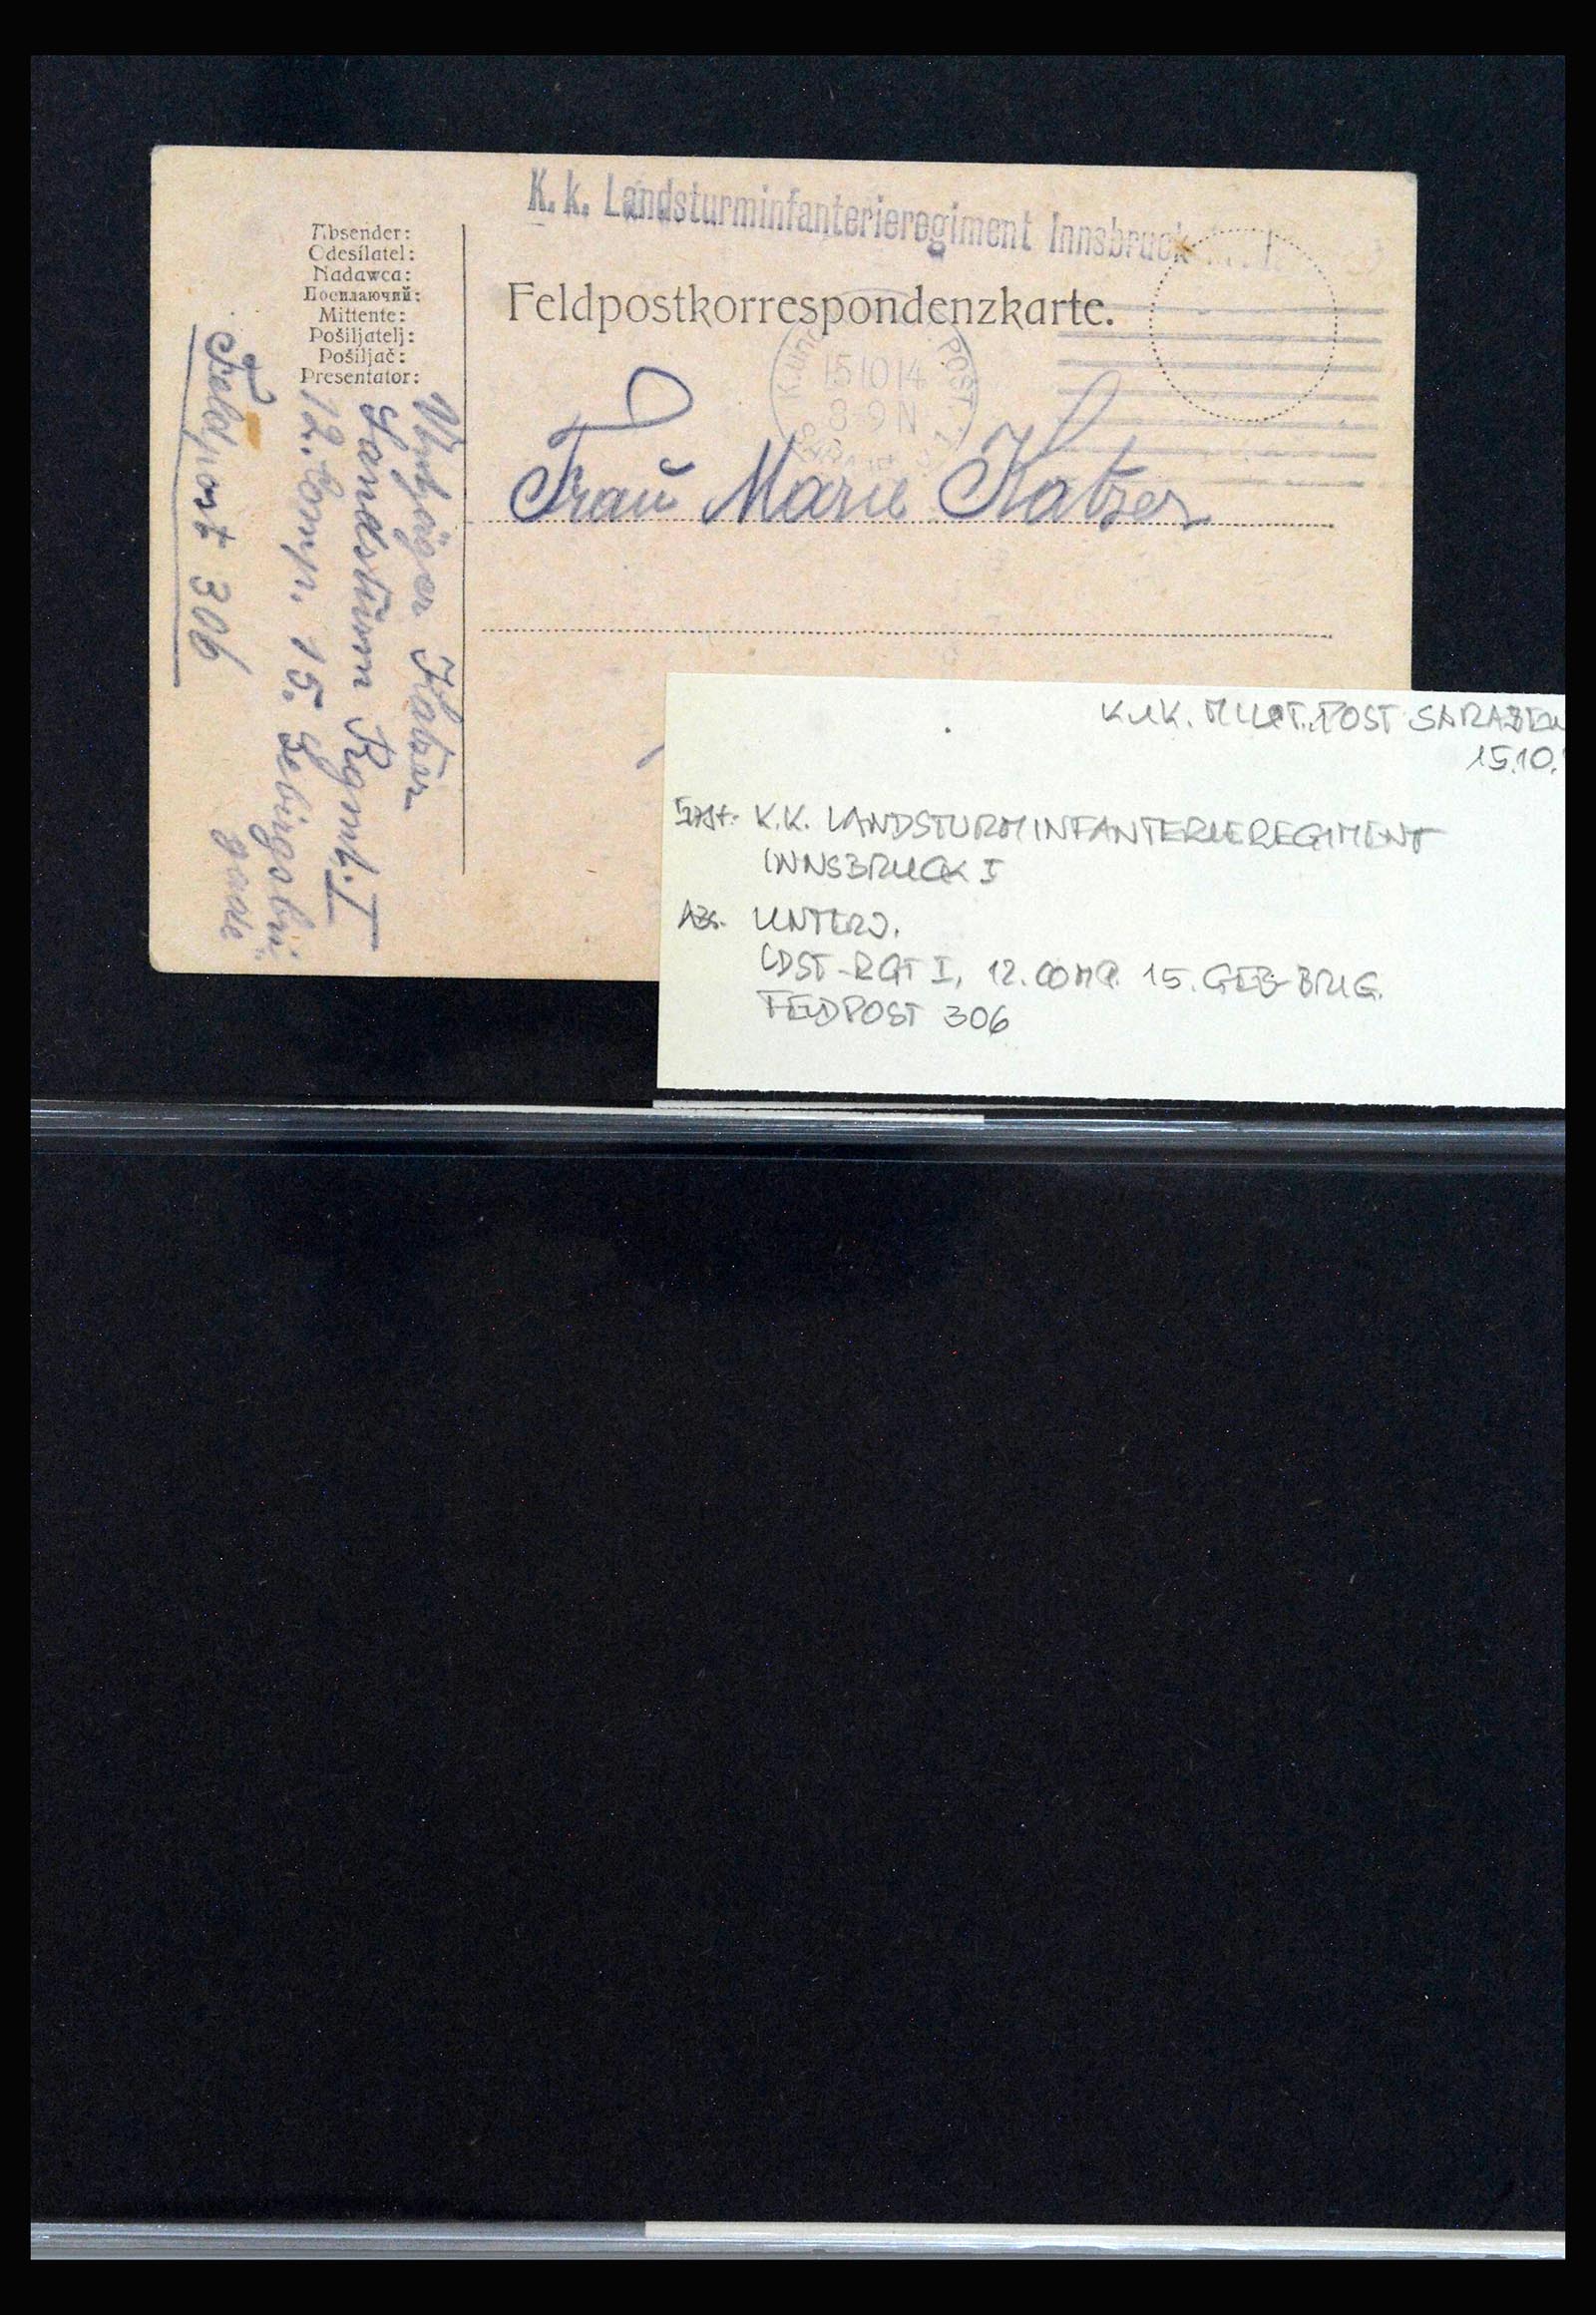 K. k. Landsturminfanterieregiment Innsbruck
Absender:
Odesílatel:
Nadawca:
Посилаючий:
Mittente:
Pošiljatelj:
Pošiljač:
Presentator:
Feldpostkorrespondenzkarte.
K. und POST
15 10 14
8-9 N
Frau Marie Katzer
Untjäger Katzer
Landsturm Rgmt. I
12. Comp. 15. Gebirgsbri
gade
Feldpost 306
K.U.K. MILIT. POST SARAJEW
15.10.
K.K. LANDSTURMINFANTERIEREGIMENT
INNSBRUCK I
ABS. UNTERJ.
LDST-RGT I, 12. COMP. 15. GEB-BRIG.
FELDPOST 306